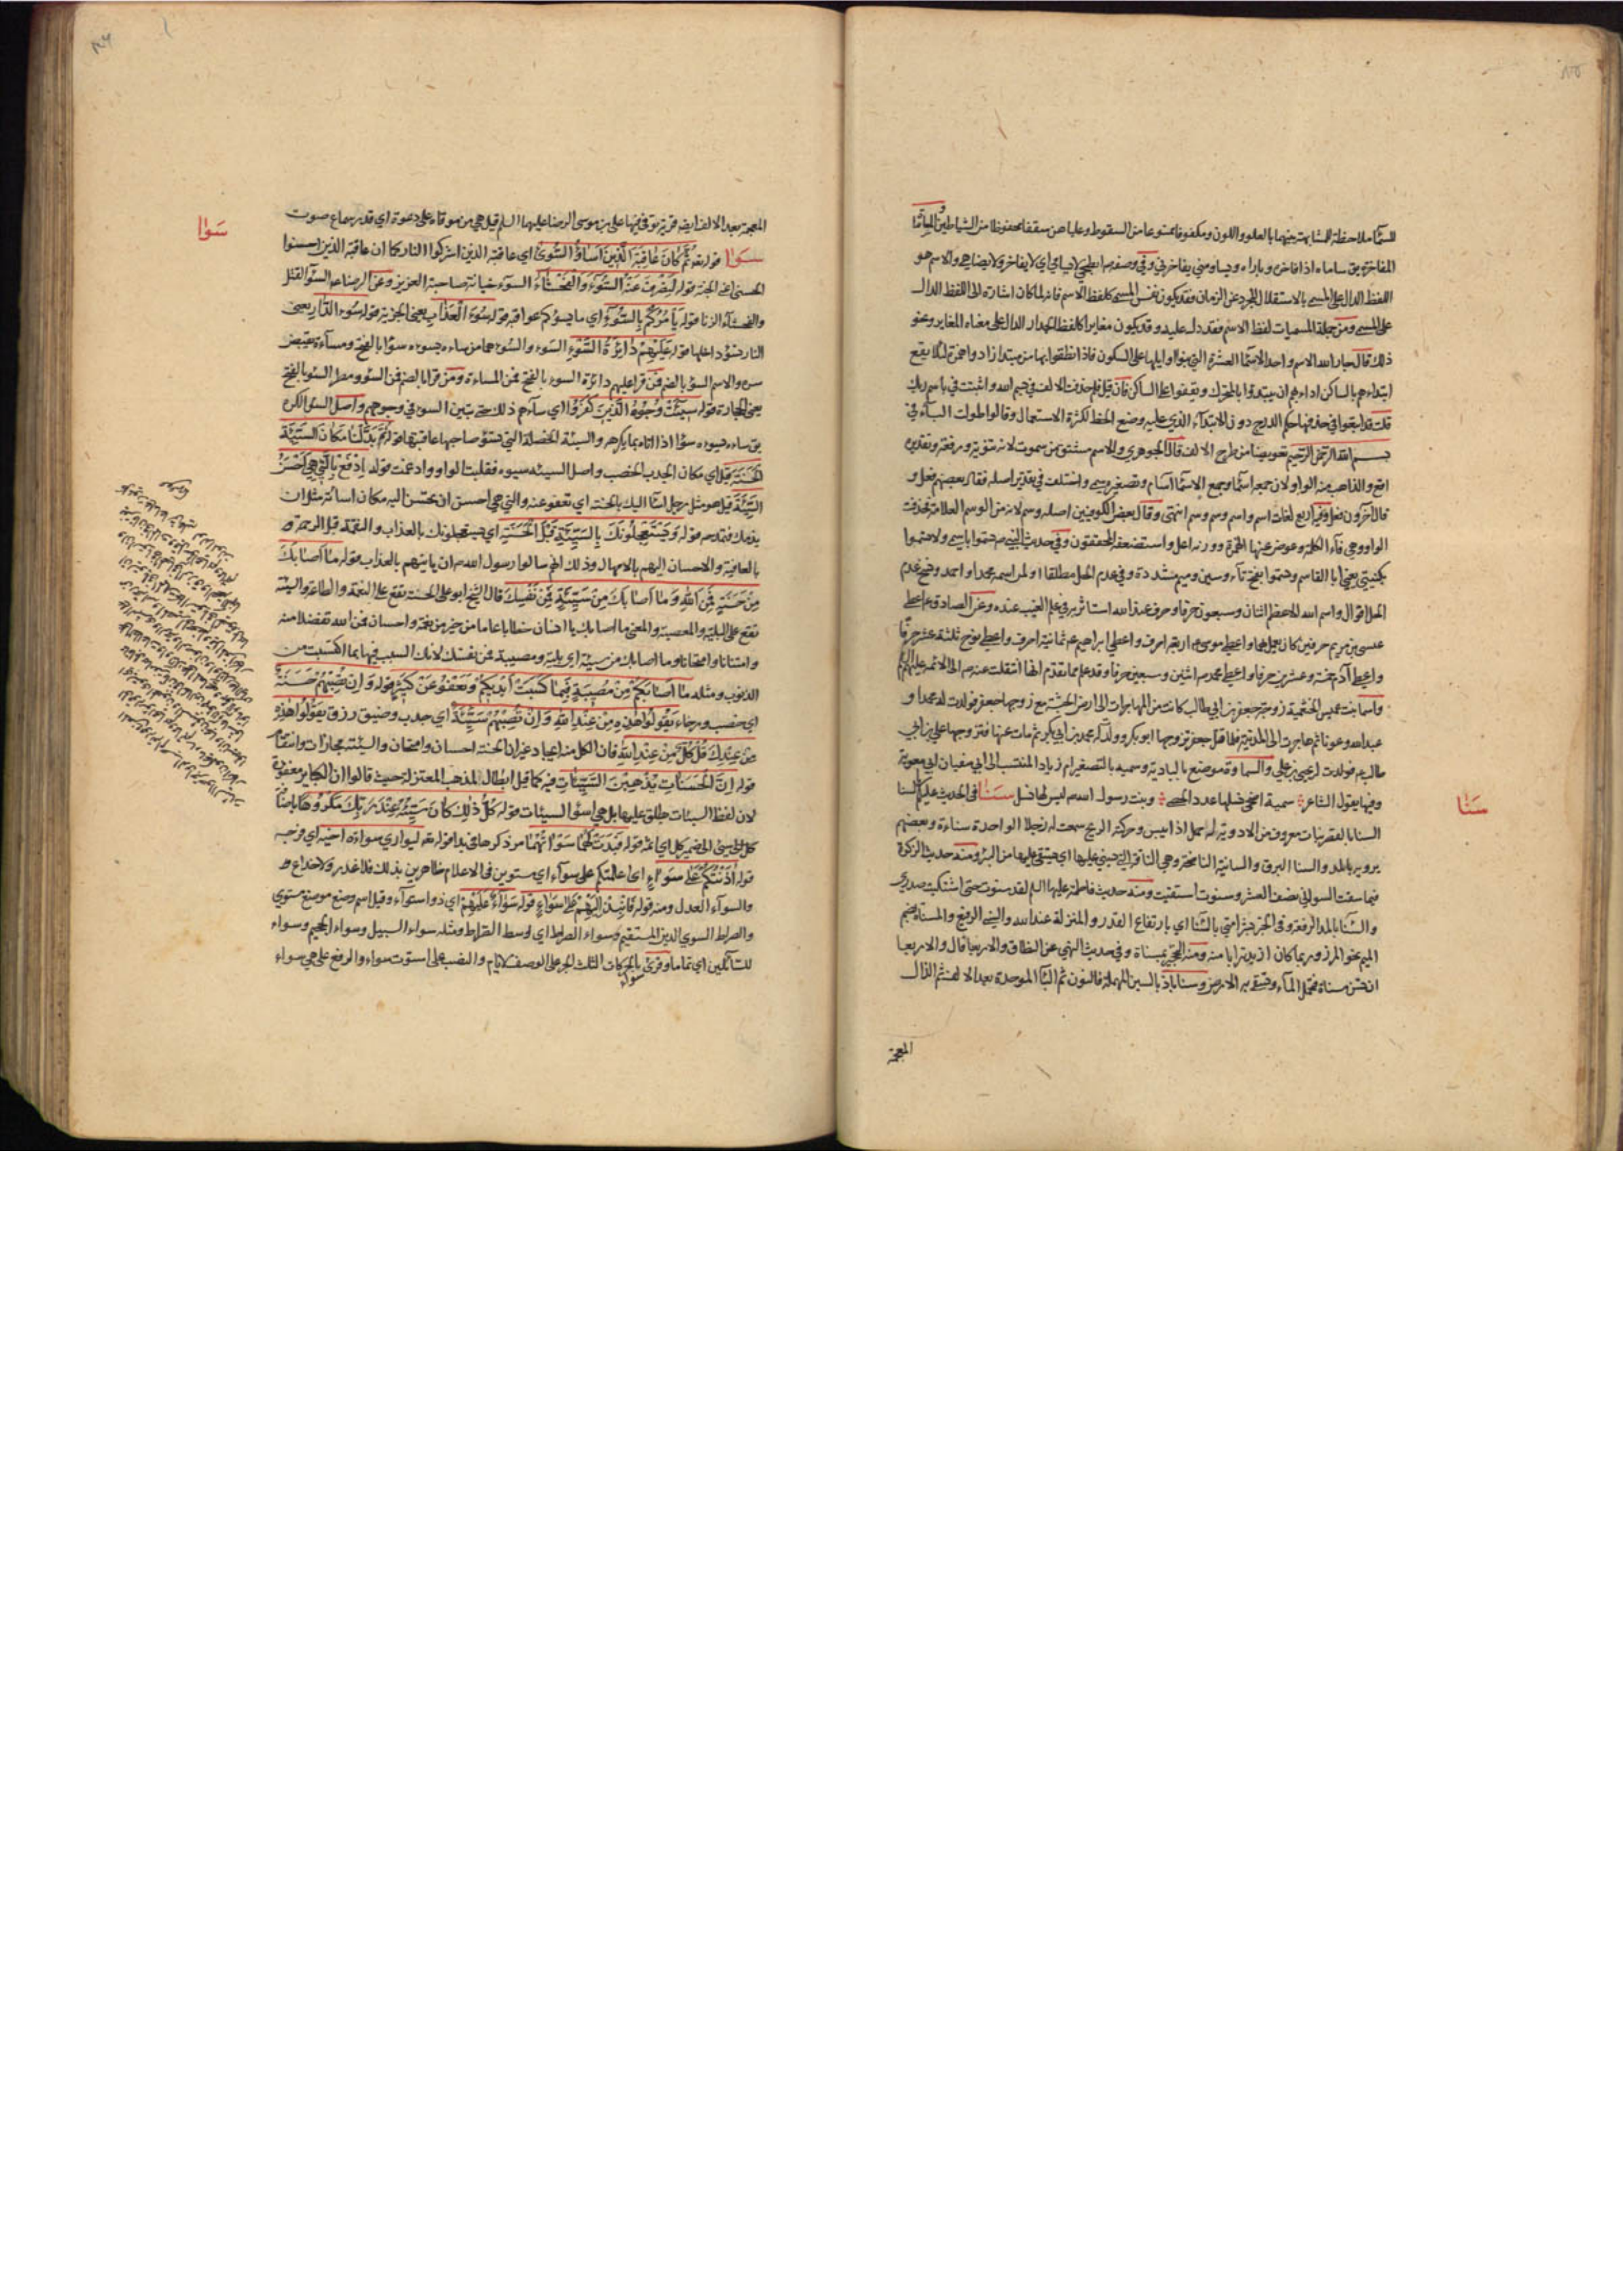 للسماء ملاحظة للمشابهة بينهما بالعلو واللون ومكفوفا ممنوعا من السقوط وعلياهن سقفا محفوظا من الشياطين والمساماة
المفاخرة يق ساماه اذا فاخره وباراه ويساومني يفاخرني وفي وصفه ابطحي لا يسامى اي لا يفاخر ولا يضاهى والاسم هو
اللفظ الدال على المسمى بالاستقلال المجرد عن الزمان فقد يكون نفس المسمى كلفظ الاسم فانه لما كان اشارة الى اللفظ الدال
على المسمى ومن جملة المسميات لفظ الاسم فقد دل عليه وقد يكون مغايرا كلفظ الجدار الدال على معناه المغاير ونحو
ذلك قال جار الله الاسم واحد الاسماء العشرة التي بنوا اوايلها على السكون فاذا نطقوا بها مبتدئين زادوا همزة لئلا يقع
ابتداءهم بالساكن اذ دابهم ان يبتدؤا بالمتحرك ويقفوا على الساكن فان قيل فلم حذفت الالف في بسم الله واثبتت في باسم ربك
قلت قد اتبعوا في حذفها حكم الدرج دون الابتداء الذي عليه وضع الخط لكثرة الاستعمال وقالوا طولت الباء في
بسم الله الرحمن الرحيم تعويضا من طرح الالف قال الجوهري والاسم مشتق من سموت لانه تنويه ورفعة وتقديره
افع والذاهب منه الواو لان جمعه اسماء وجمع الاسماء اسام وتصغيره سمي واختلف في تقدير اصله فقال بعضهم فعل و
قال آخرون فعل وفيه اربع لغات اسم واسم وسم وسم انتهى وقال بعض الكوفيين اصله وسم لانه من الوسم العلامة فحذفت
الواو وهي فاء الكلمة وعوض عنها الهمزة ووزنه اعل واستضعفه المحققون وفي حديث النبي ص سموا باسمي ولا تسموا
بكنيتي يعني ابا القاسم وتسموا بفتح تاء وسين وميم مشددة وفي عدم الحل مطلقا او لمن اسمه محمد او احمد ونسخ عدم
الحل اقوال واسم الله الاعظم اثنان وسبعون حرفا وحرف عند الله استاثر به في علم الغيب عنده وعن الصادق ع اعطي
عيسى بن مريم حرفين كان يعمل بهما واعطي موسى ع اربعة احرف واعطي ابراهيم ع ثمانية احرف واعطي نوح خمسة عشر حرفا
واعطي آدم خمسة وعشرين حرفا واعطي محمد ص اثنين وسبعين حرفا وقد علم مما تقدم انها انتقلت عنه ص الى الائمة عليهم السلم
واسما بنت عميس الخثعمية زوجة جعفر بن ابي طالب كانت من المهاجرات الى ارض الحبشة مع زوجها جعفر فولدت له محمدا و
عبد الله وعونا ثم هاجرت الى المدينة فلما قتل جعفر تزوجها ابو بكر وولد له محمد بن ابي بكر ثم مات عنها فتزوجها علي بن ابي
طالب ع فولدت له يحيى بن علي والسماوة موضع بالبادية وسميه بالتصغير ام زياد المنتسب الى ابي سفيان ابي معوية
وفيها يقول الشاعر سمية امسى نسلها عدد الحصى وبنت رسول الله ص ليس لها نسل سنا في الحديث عليكم بالسنا
السنا بالقصر نبات معروف من الادوية له حمل اذا يبس وحركته الريح سمعت له زجلا الواحدة سناءة وبعضهم
يرويه بالمد والسنا البرق والسانية الناضحة وهي الناقة التي يسنى عليها اي يستقى عليها من البئر ومنه حديث الزكوة
فيما سقت السواني نصف العشر وسنوت استقيت ومنه حديث فاطمة عليها السلم لقد سنوت حتى اشتكيت صدري
والسناء بالمد الرفعة وفي الخبر بشر امتي بالسناء اي بارتفاع القدر والمنزلة عند الله والسني الرفيع والمسناة بضم
الميم نحو المرز وربما كان ازيد ترابا منه ومنه التحجير بمسناة وفي حديث النهي عن النطاف والاربعا قال والاربعا
ان تسن مسناة فتحمل الماء وتسقي به الارض وسناباذ بالسين المهملة فالنون ثم الباء الموحدة بعد الالف ثم الذال
المعجمة
سنا
المعجمة بعد الالف ايضا قرية توفي فيها علي بن موسى الرضا عليهما السلم قيل هي من موقان على دعوة اي قدر سماع صوت
سوا قوله تعه ثم كان عاقبة الذين اساؤا السوأى اي عاقبة الذين اشركوا النار كما ان عاقبة الذين احسنوا
الحسنى اعني الجنة قوله ليصرف عنه السوء والفحشاء السوء خيانة صاحبة العزيز وعن الرضا ع السوء القتل
والفحشاء الزنا قوله يامركم بالسوء اي ما يسؤكم عواقبه قوله سوء العذاب يعني الجزية قوله سوء الدار يعني
النار تسؤ داخلها قوله عليهم دائرة السوء السوء والسوء هما من ساءه يسوءه سوءا بالفتح ومساءة نقيض
سره والاسم السؤ بالضم فمن قرأ عليهم دائرة السوء بالفتح فمن المساءة ومن قرأ بالضم فمن السؤ ومطر السؤ بالفتح
يعني الحجارة قوله سيئت وجوه الذين كفروا اي ساءهم ذلك حتى تبين السوء في وجوههم واصل السؤ الكره
يق ساءه يسوءه سؤا اذا اتاه بما يكرهه والسيئة الخصلة التي تسؤ صاحبها عاقبتها قوله ثم بدلنا مكان السيئة
الحسنة قيل اي مكان الجدب الخصب واصل السيئة سيوءة فقلبت الواو وادغمت قوله ادفع بالتي هي احسن
السيئة قيل هو مثل رجل اساء اليك بالحسنة اي تعفو عنه والتي هي احسن ان تحسن اليه مكان اساءته مثل ان
يذمك فتمدحه قوله ويستعجلونك بالسيئة قبل الحسنة اي يستعجلونك بالعذاب والنقمة قبل الرحمة و
بالعافية والاحسان اليهم بالامهال وذلك انهم سالوا رسول الله ص ان ياتيهم بالعذاب قوله ما اصابك
من حسنة فمن الله وما اصابك من سيئة فمن نفسك قال الشيخ ابو علي الحسنة تقع على النعمة والطاعة والسيئة
تقع على البلية والمعصية والمعنى ما اصابك يا انسان خطابا عاما من خير من نعمة واحسان فمن الله تفضلا منه
وامتنانا وامتحانا وما اصابك من سيئة اي بلية ومصيبة فمن نفسك لانك السبب فيها بما اكتسبت من
الذنوب ومثله ما اصابكم من مصيبة فبما كسبت ايديكم ويعفو عن كثير قوله وان تصبهم حسنة
اي خصب ورخاء يقولوا هذه من عند الله وان تصبهم سيئة اي جدب وضيق رزق يقولوا هذه
من عندك قل كل من عند الله فان الكل منه ايجادا غير ان الحسنة احسان وامتحان والسيئة مجازات وانتقام
قوله ان الحسنات يذهبن السيئات فيه كما قيل ابطال لمذهب المعتزلة حيث قالوا ان الكباير غير مغفورة
لان لفظ السيئات يطلق عليها بل هي اسؤ السيئات قوله كل ذلك كان سيئه عند ربك مكروها باضافة
سيئ الى ضمير كل اي اثمه قوله فبدت لهما سوآتهما مر ذكرها في بدا قوله تعه ليواري سوأة اخيه اي فرجه
قوله آذنتكم على سواء اي اعلمتكم على سواء اي مستوين في الاعلام ظاهرين بذلك فلا غدر ولا خداع و
والسواء العدل ومنه قوله فانبذ اليهم على سواء قوله سواء عليهم اي ذو استواء وقيل اسم وضع موضع مستوي
والصراط السوي الدين المستقيم وسواء الصراط اي وسط الصراط ومثله سواء السبيل وسواء الجحيم وسواء
للسائلين اي تماما وقرئ سواء بالحركات الثلث الجر على الوصف لايام والنصب على استوت سواء والرفع على هي سواء
سوا